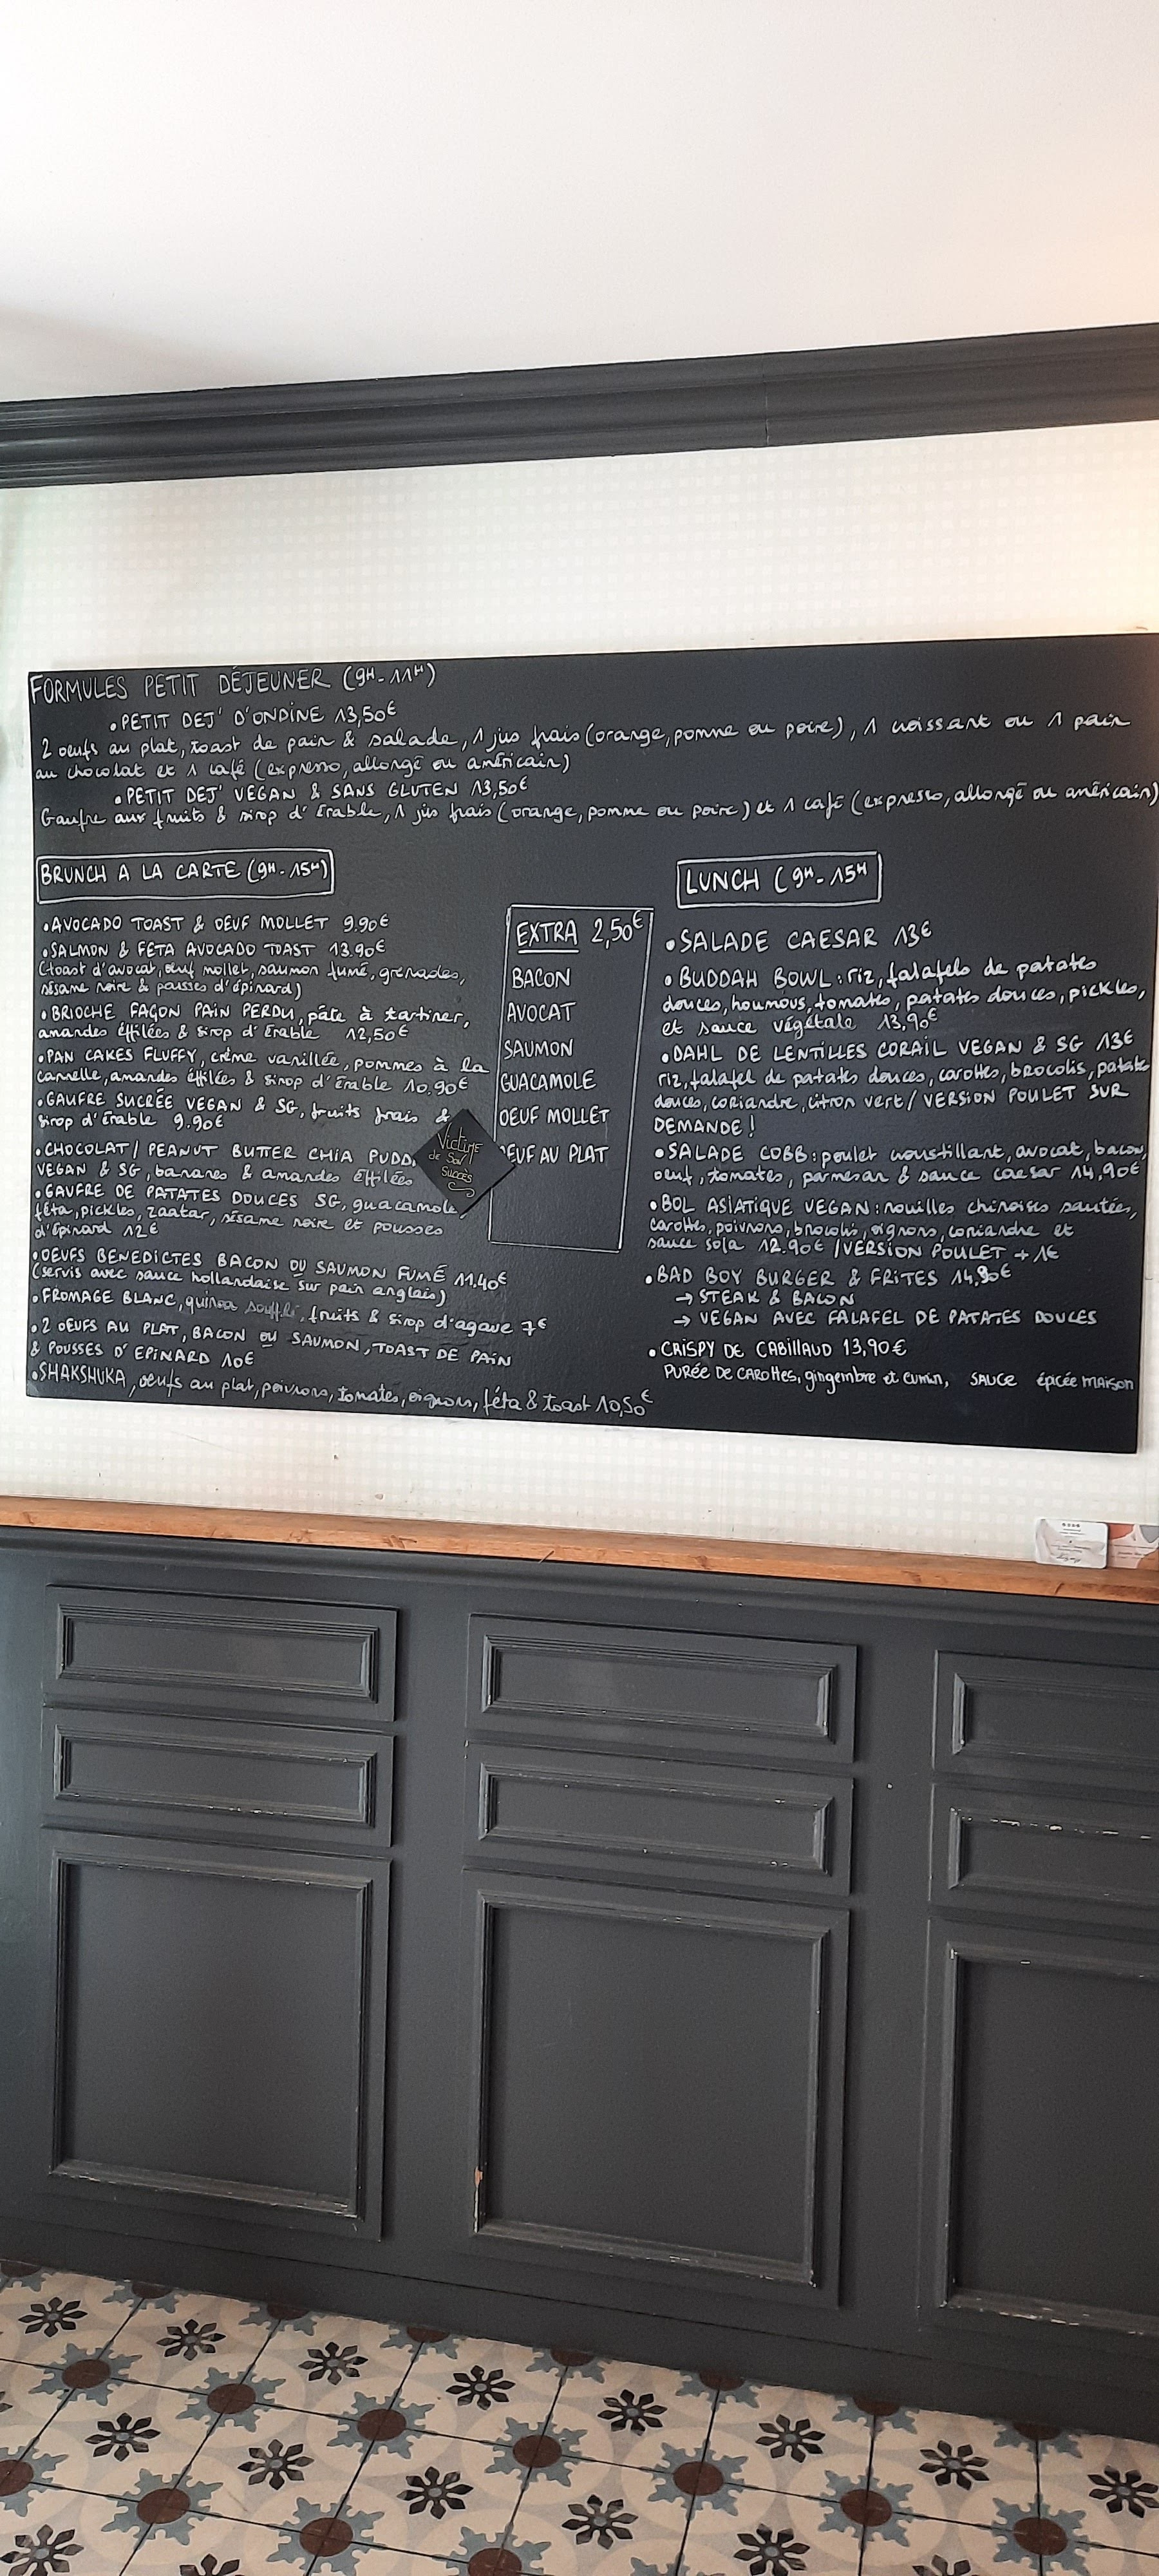 FORMULES PETIT DÉJEUNER (9H-11H)
• PETIT DEJ' D'ONDINE 13,50€
2 oeufs au plat, toast de pain & salade, 1 jus frais (orange, pomme ou poire), 1 croissant ou 1 pain
au chocolat et 1 café (expresso, allongé ou américain)
• PETIT DEJ' VEGAN & SANS GLUTEN 13,50€
Gaufre aux fruits & sirop d'érable, 1 jus frais (orange, pomme ou poire) et 1 café (expresso, allongé ou américain)
BRUNCH A LA CARTE (9H-15H)
• AVOCADO TOAST & OEUF MOLLET 9.90€
• SALMON & FÉTA AVOCADO TOAST 13.90€
(toast d'avocat, oeuf mollet, saumon fumé, grenades,
sésame noire & pousses d'épinard)
• BRIOCHE FAÇON PAIN PERDU, pâte à tartiner,
amandes éffilées & sirop d'érable 12,50€
• PAN CAKES FLUFFY, crème vanillée, pommes à la
cannelle, amandes éffilées & sirop d'érable 10.90€
• GAUFRE SUCRÉE VEGAN & SG, fruits frais &
sirop d'érable 9.90€
• CHOCOLAT / PEANUT BUTTER CHIA PUDD
VEGAN & SG, bananes & amandes éffilées
• GAUFRE DE PATATES DOUCES SG, guacamole,
féta, pickles, zaatar, sésame noire et pousses
d'épinard 12€
• OEUFS BENEDICTES BACON OU SAUMON FUMÉ 11.40€
(servis avec sauce hollandaise sur pain anglais)
• FROMAGE BLANC, quinoa soufflé, fruits & sirop d'agave 7€
• 2 OEUFS AU PLAT, BACON OU SAUMON, TOAST DE PAIN
& POUSSES D'EPINARD 10€
• SHAKSHUKA, oeufs au plat, poivrons, tomates, oignons, féta & toast 10,50€
Victime
de Son
Succès
EXTRA 2,50€
BACON
AVOCAT
SAUMON
GUACAMOLE
OEUF MOLLET
OEUF AU PLAT
LUNCH (9H-15H
• SALADE CAESAR 13€
• BUDDAH BOWL : riz, falafels de patates
douces, houmous, tomates, patates douces, pickles,
et sauce végétale 13,90€
• DAHL DE LENTILLES CORAIL VEGAN & SG 13€
riz, falafel de patates douces, carottes, brocolis, patates
douces, coriandre, citron vert / VERSION POULET SUR
DEMANDE !
• SALADE COBB : poulet croustillant, avocat, bacon,
oeuf, tomates, parmesan & sauce caesar 14,90€
• BOL ASIATIQUE VEGAN : nouilles chinoises sautées,
carottes, poivrons, brocolis, oignons, coriandre et
sauce soja 12.90€ / VERSION POULET + 1€
• BAD BOY BURGER & FRITES 14,90€
→ STEAK & BACON
→ VEGAN AVEC FALAFEL DE PATATES DOUCES
• CRISPY DE CABILLAUD 13,90€
PURÉE DE CAROTTES, gingembre et cumin, SAUCE épicée MAISON